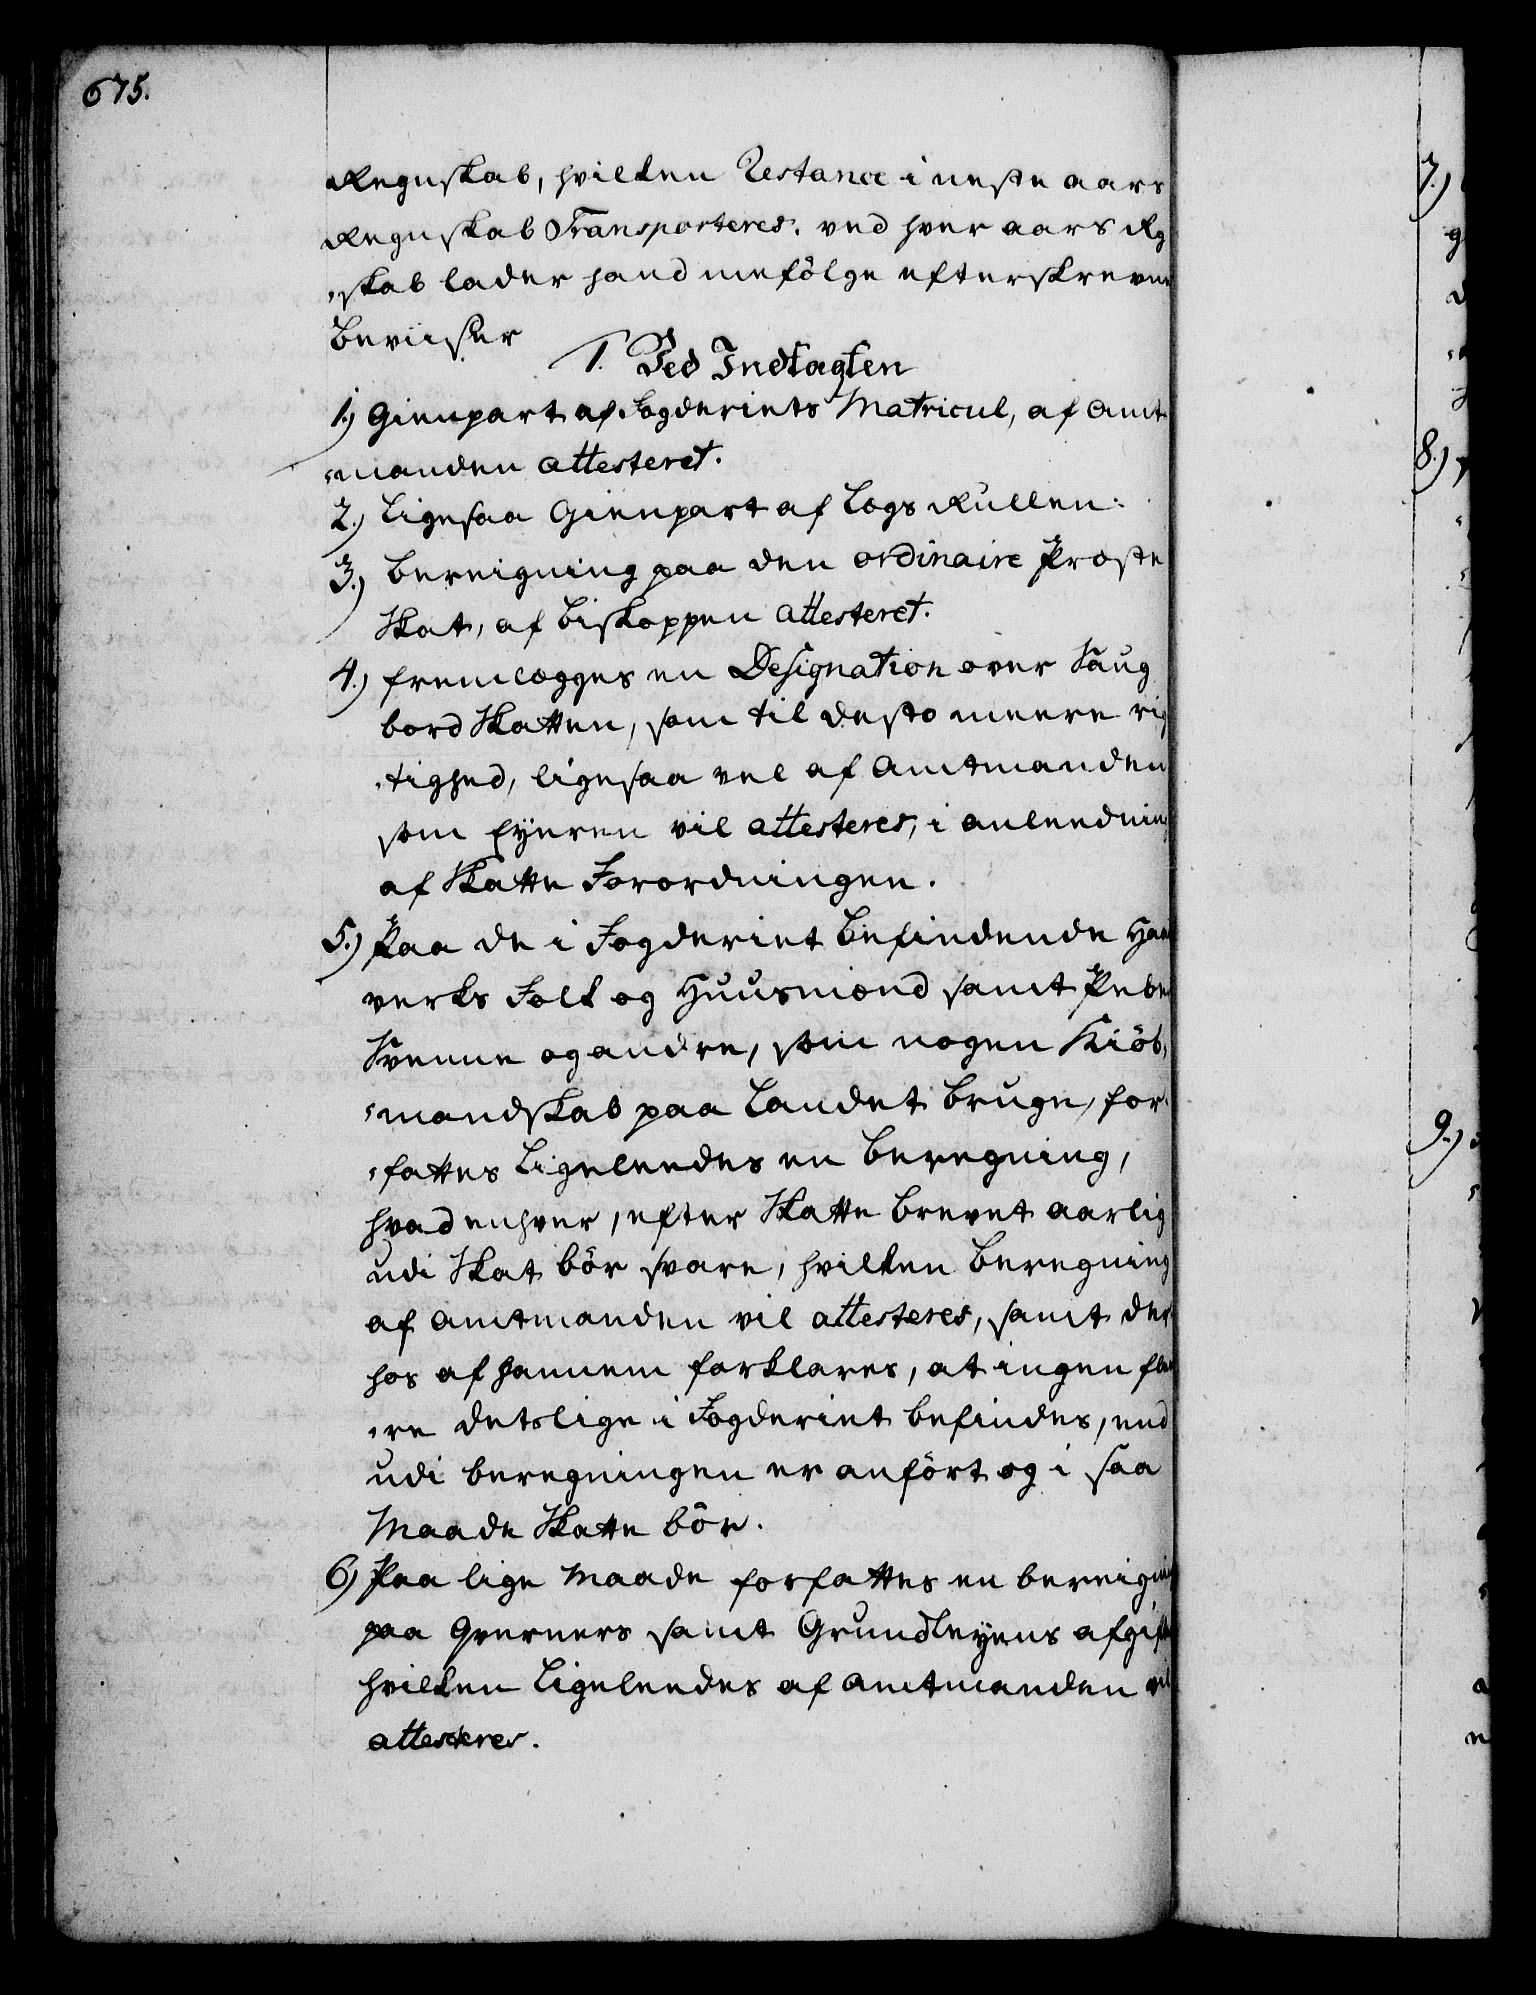 675.
Regnskab, hvilken Restance i neste aars
Regnskab Transporteres. ved hver aars Rg
skab lader hand mefölge efterskrevne
Beviiser
1. Ved Indtagten
1.) Gienpart af Fogderiets Matricul, af Amt
manden attesteret.
2.) Ligesaa Gienpart af Logs Rullen.
3.) Bereigning paa den ordinaire Præste
Skat, af Biskoppen attesteret.
4.) fremlægges en Designation over Saug
bord Skatten, som til desto meere rig
tighed, ligesaa vel af Amtmanden
som Eyeren vil attesteres, i anleedning
af Skatte Forordningen.
5.) Paa de i Fogderiet Befindende Haand
verks Folk og Huusmænd samt Peber
Svenne og andre, som nogen Kiöb,
mandskab paa Landet bruge, for
fattes Ligeleedes en Beregning,
hvad enhver, efter Skatte Brevet aarlig
udi Skat bör svare, hvilken Beregning
af Amtmanden vil attesteres, samt der
hos af hannem forklares, at ingen flee
re detslige i Fogderiet befindes, end
udi beregningen er anfört og i saa
Maade Skatte bör.
6) Paa lige Maade forfattes en bereigning
paa Qverners samt Grundleyens afgift
hvilken Ligeleedes af Amtmanden vil
attesteres.
7.)
8.)
9.)